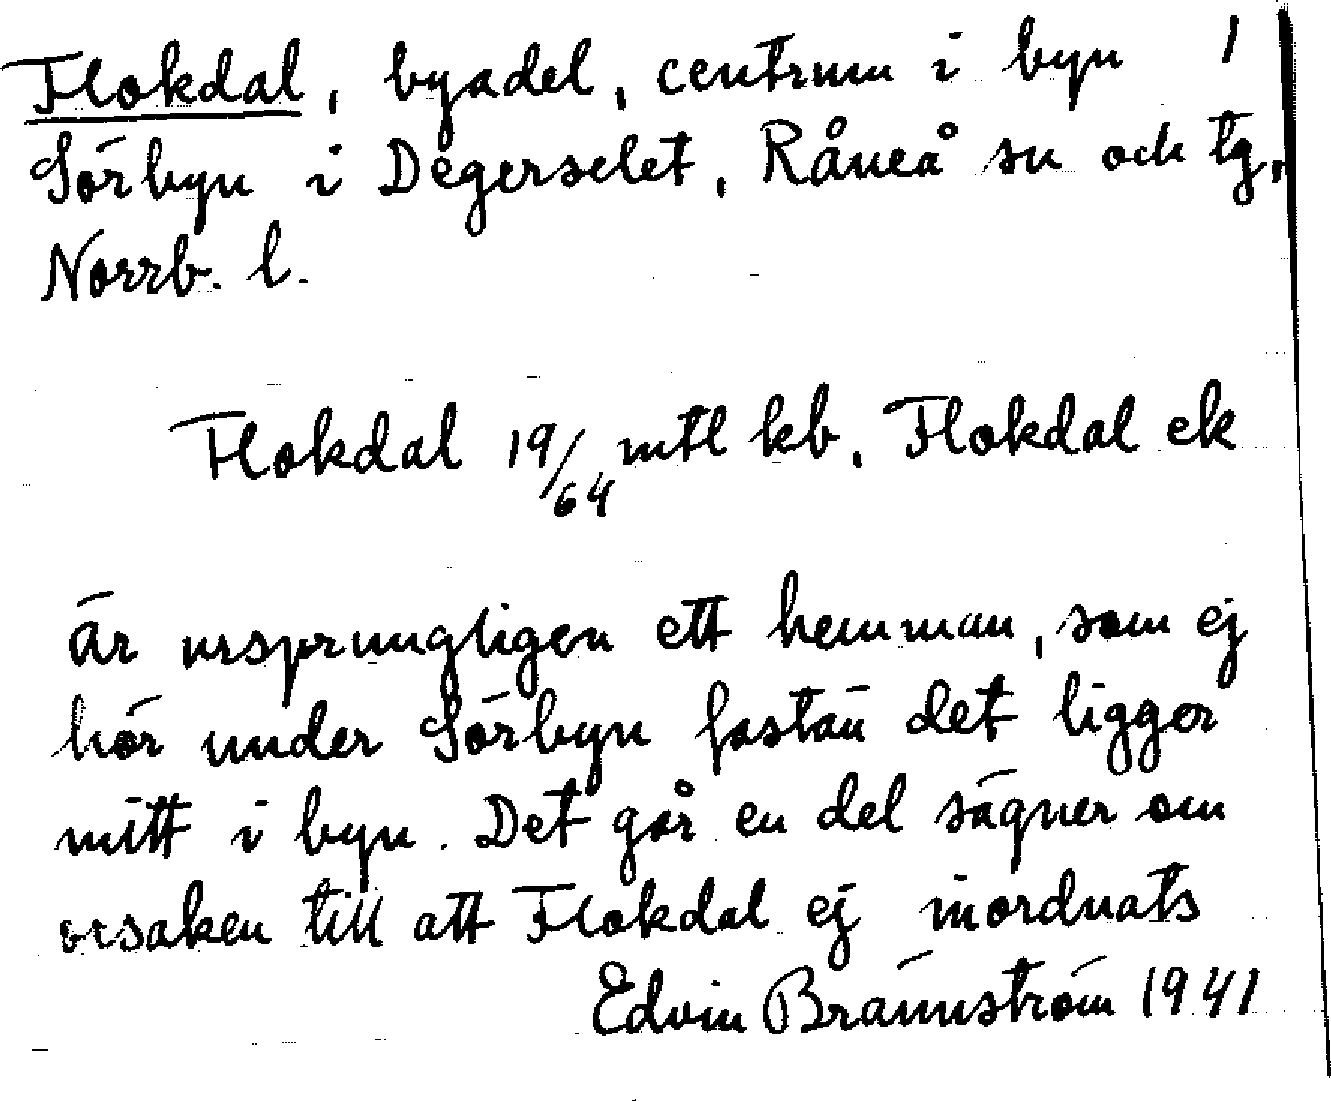 Flokdal, byadel, centrum i byn 1
Sörbyn i Degerselet, Råneå sn och tg,
Norrb. l.
Flokdal 19/64 mtl kb, Flokdal ek
är ursprungligen ett hemman, som ej
hör under Sörbyn fastän det ligger
mitt i byn. Det går en del sägner om
orsaken till att Flokdal ej inordnats
Edvin Brännström 1941